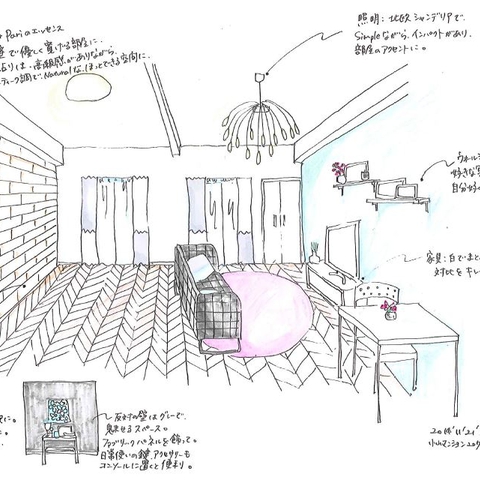 Pariのエッセンス
で優しく寛げる部屋に。
は、高級感がありながら、
ティーク調で、Naturalな、ほっとできる空間に。
照明：北欧シャンデリアで、
Simpleながら、インパクトがあり、
部屋のアクセントに。
ウォール
好きな
自分好
家具：白でまと
対比をキレ
に。
反対の壁はグレーで、
魅せるスペース。
ファブリックパネルを飾って。
日常使いの鏡、アクセサリーも
コンソールに置くと便利。